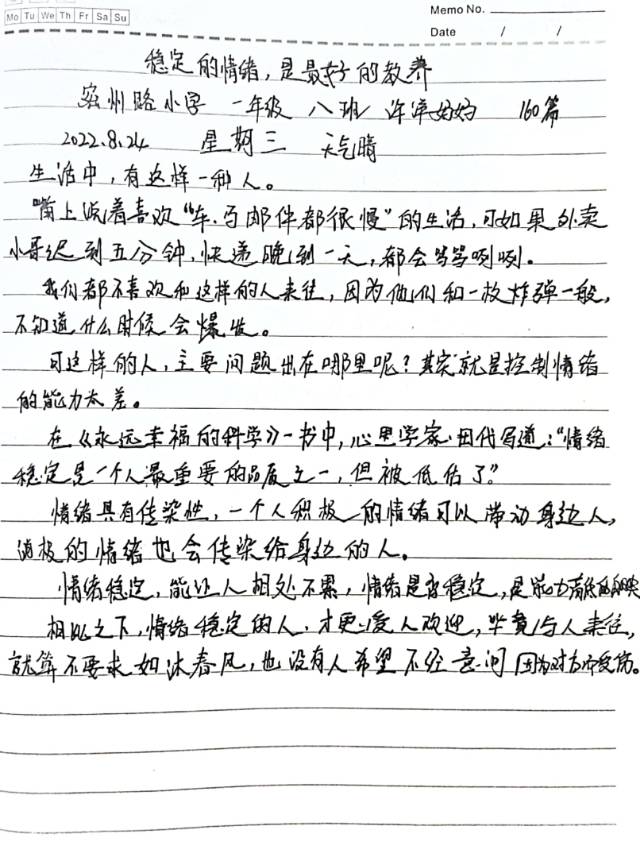 Mo Tu We Th Fr Sa Su
Memo No.
Date / /
稳定的情绪，是最好的教养
密州路小学 一年级 八班 许淖妈妈 160篇
2022.8.24 星期三 天气晴
生活中，有这样一种人。
嘴上说着喜欢“车、马邮件都很慢”的生活，可如果外卖
小哥迟到五分钟，快递晚到一天，都会骂骂咧咧。
我们都不喜欢和这样的人来往，因为他们和一枚炸弹一般，
不知道什么时候会爆发。
可这样的人，主要问题出在哪里呢？其实就是控制情绪
的能力太差。
在《永远幸福的科学》一书中，心思学家田代写道：“情绪
稳定是一个人最重要的品质之一，但被低估了”
情绪具有传染性，一个人积极的情绪可以带动身边人，
消极的情绪也会传染给身边的人。
情绪稳定，能让人相处不累，情绪是否稳定，是能力高低的映
相比之下，情绪稳定的人，才更受人欢迎，毕竟与人来往，
就算不要求如沐春风，也没有人希望不经意间因为对方而受伤。